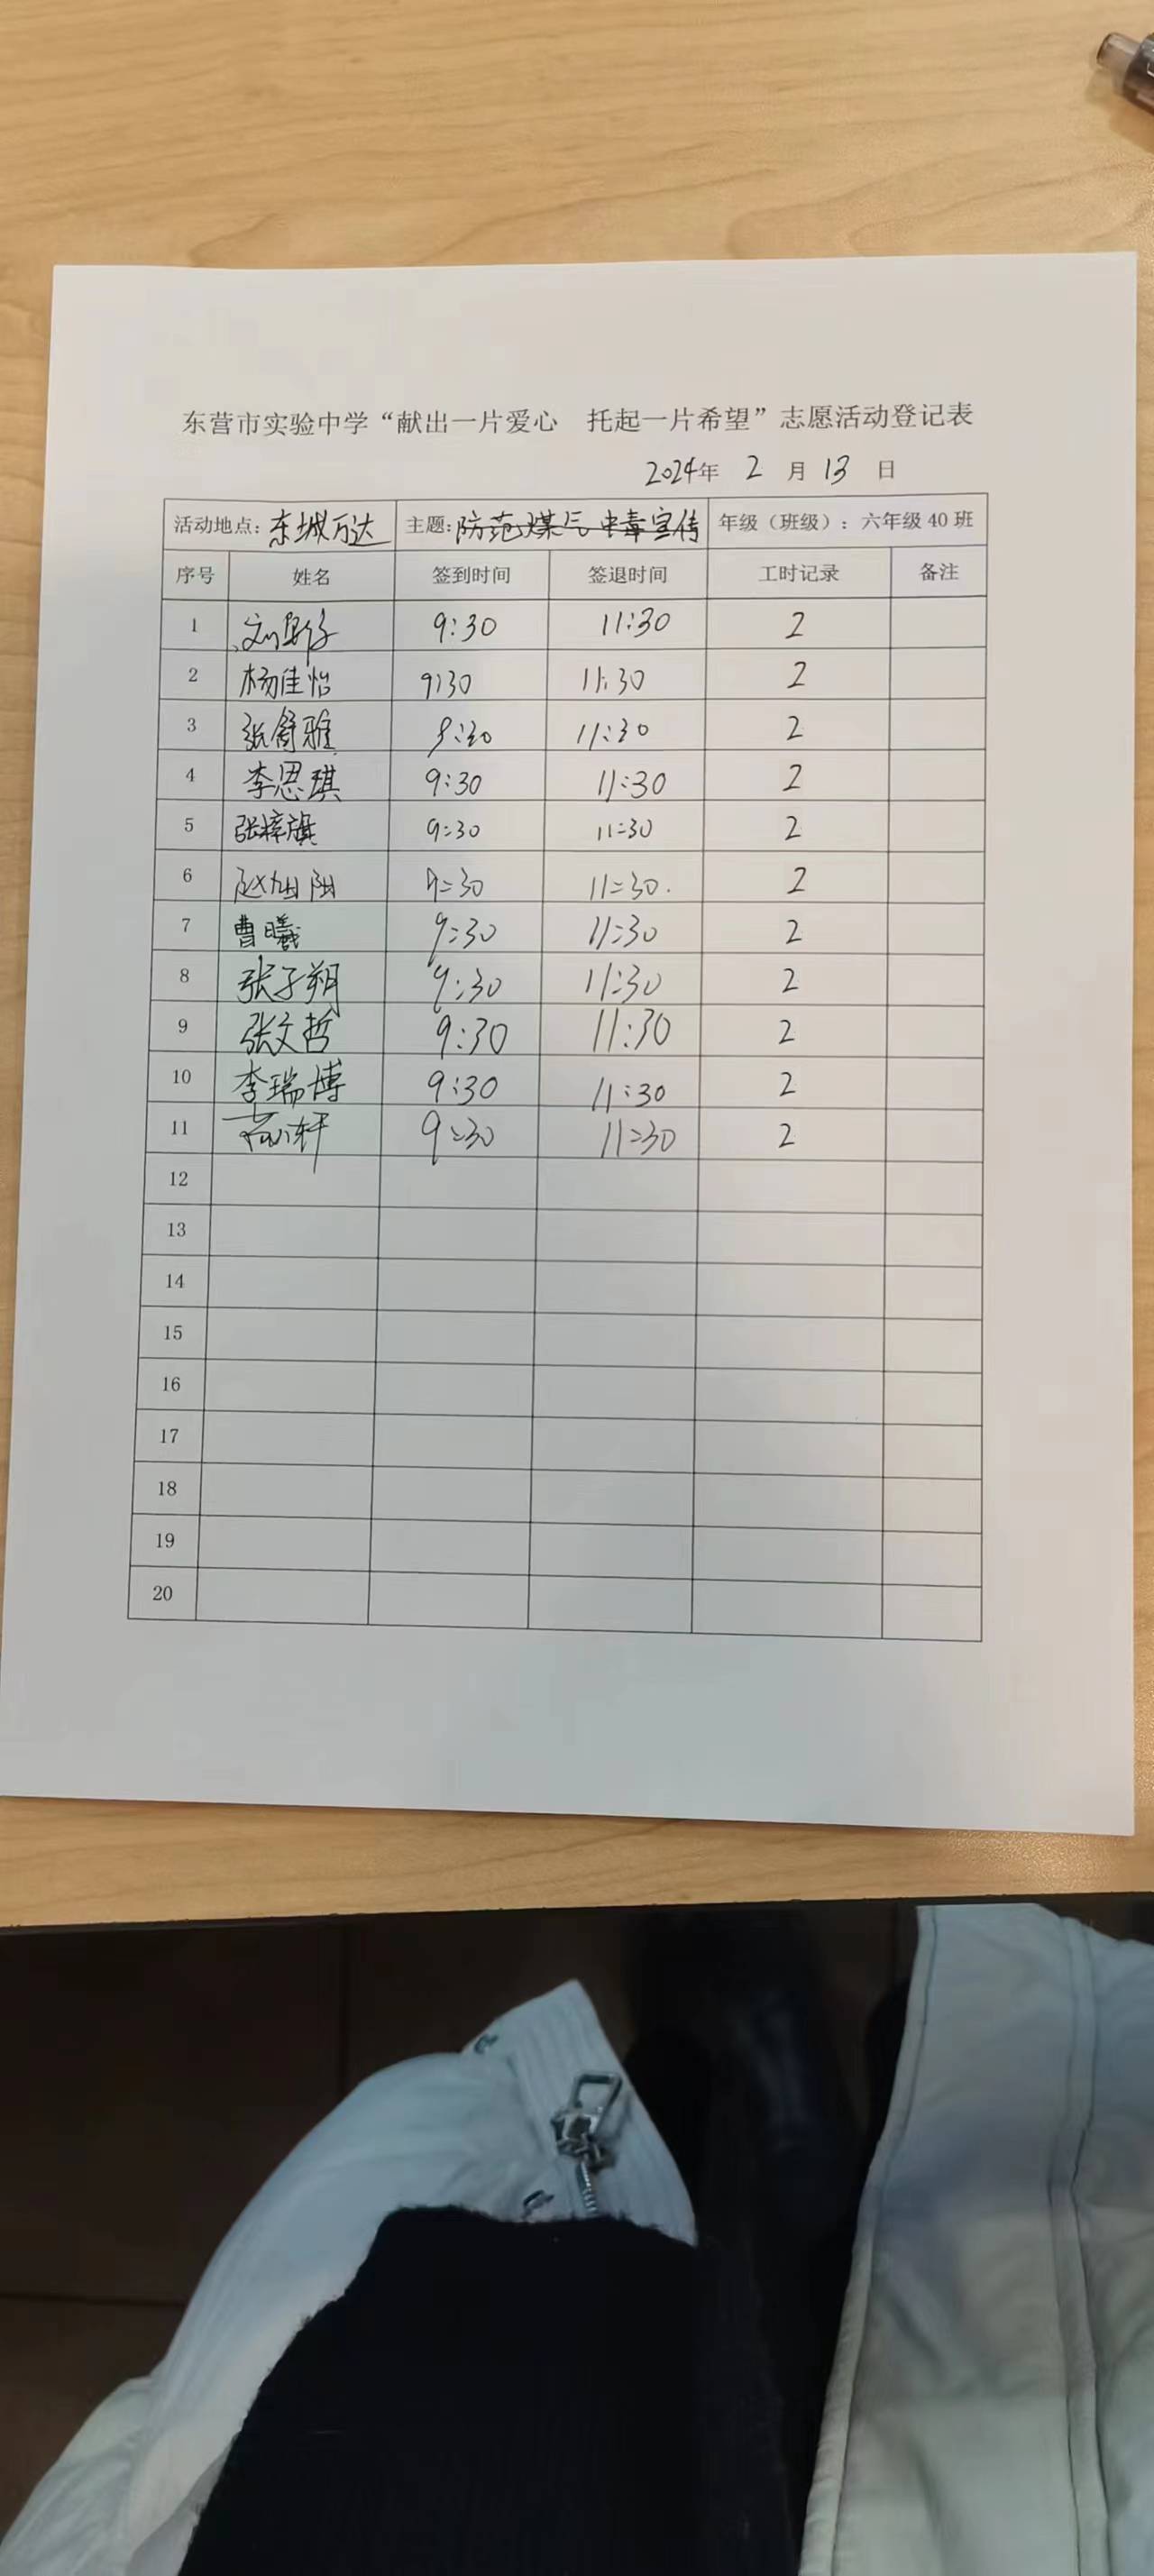 东营市实验中学“献出一片爱心 托起一片希望”志愿活动登记表
2024年 2 月 13 日
活动地点：东城万达 主题：防范煤气中毒宣传 年级（班级）：六年级 40 班
序号 姓名 签到时间 签退时间 工时记录 备注
1 刘 9:30 11:30 2
2 杨佳怡 9:30 11:30 2
3 张舒雅 9:30 11:30 2
4 李思琪 9:30 11:30 2
5 张梓旗 9:30 11:30 2
6 赵旭阳 9:30 11:30 2
7 曹曦 9:30 11:30 2
8 张子朔 9:30 11:30 2
9 张文哲 9:30 11:30 2
10 李瑞博 9:30 11:30 2
11 9:30 11:30 2
12
13
14
15
16
17
18
19
20